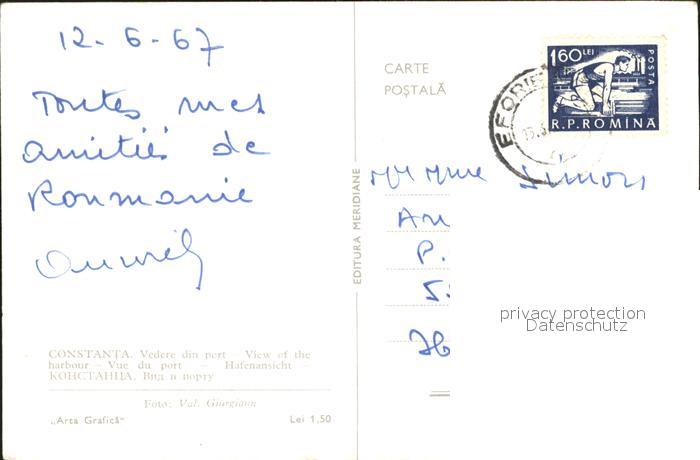 12-6-67
Toutes mes
amitiés de
Roumanie
CONSTANȚA. Vedere din port – View of the
harbour – Vue du port – Hafenansicht –
КОНСТАНЦА. Вид в порту
Foto: Val. Giurgiann
„Arta Grafică“
Lei 1,50
EDITURA MERIDIANE
CARTE
POȘTALĂ
EFORIE
1.60 LEI
POSTA
R.P.ROMINA
Mr Mme Simon
An
P.
privacy protection
Datenschutz